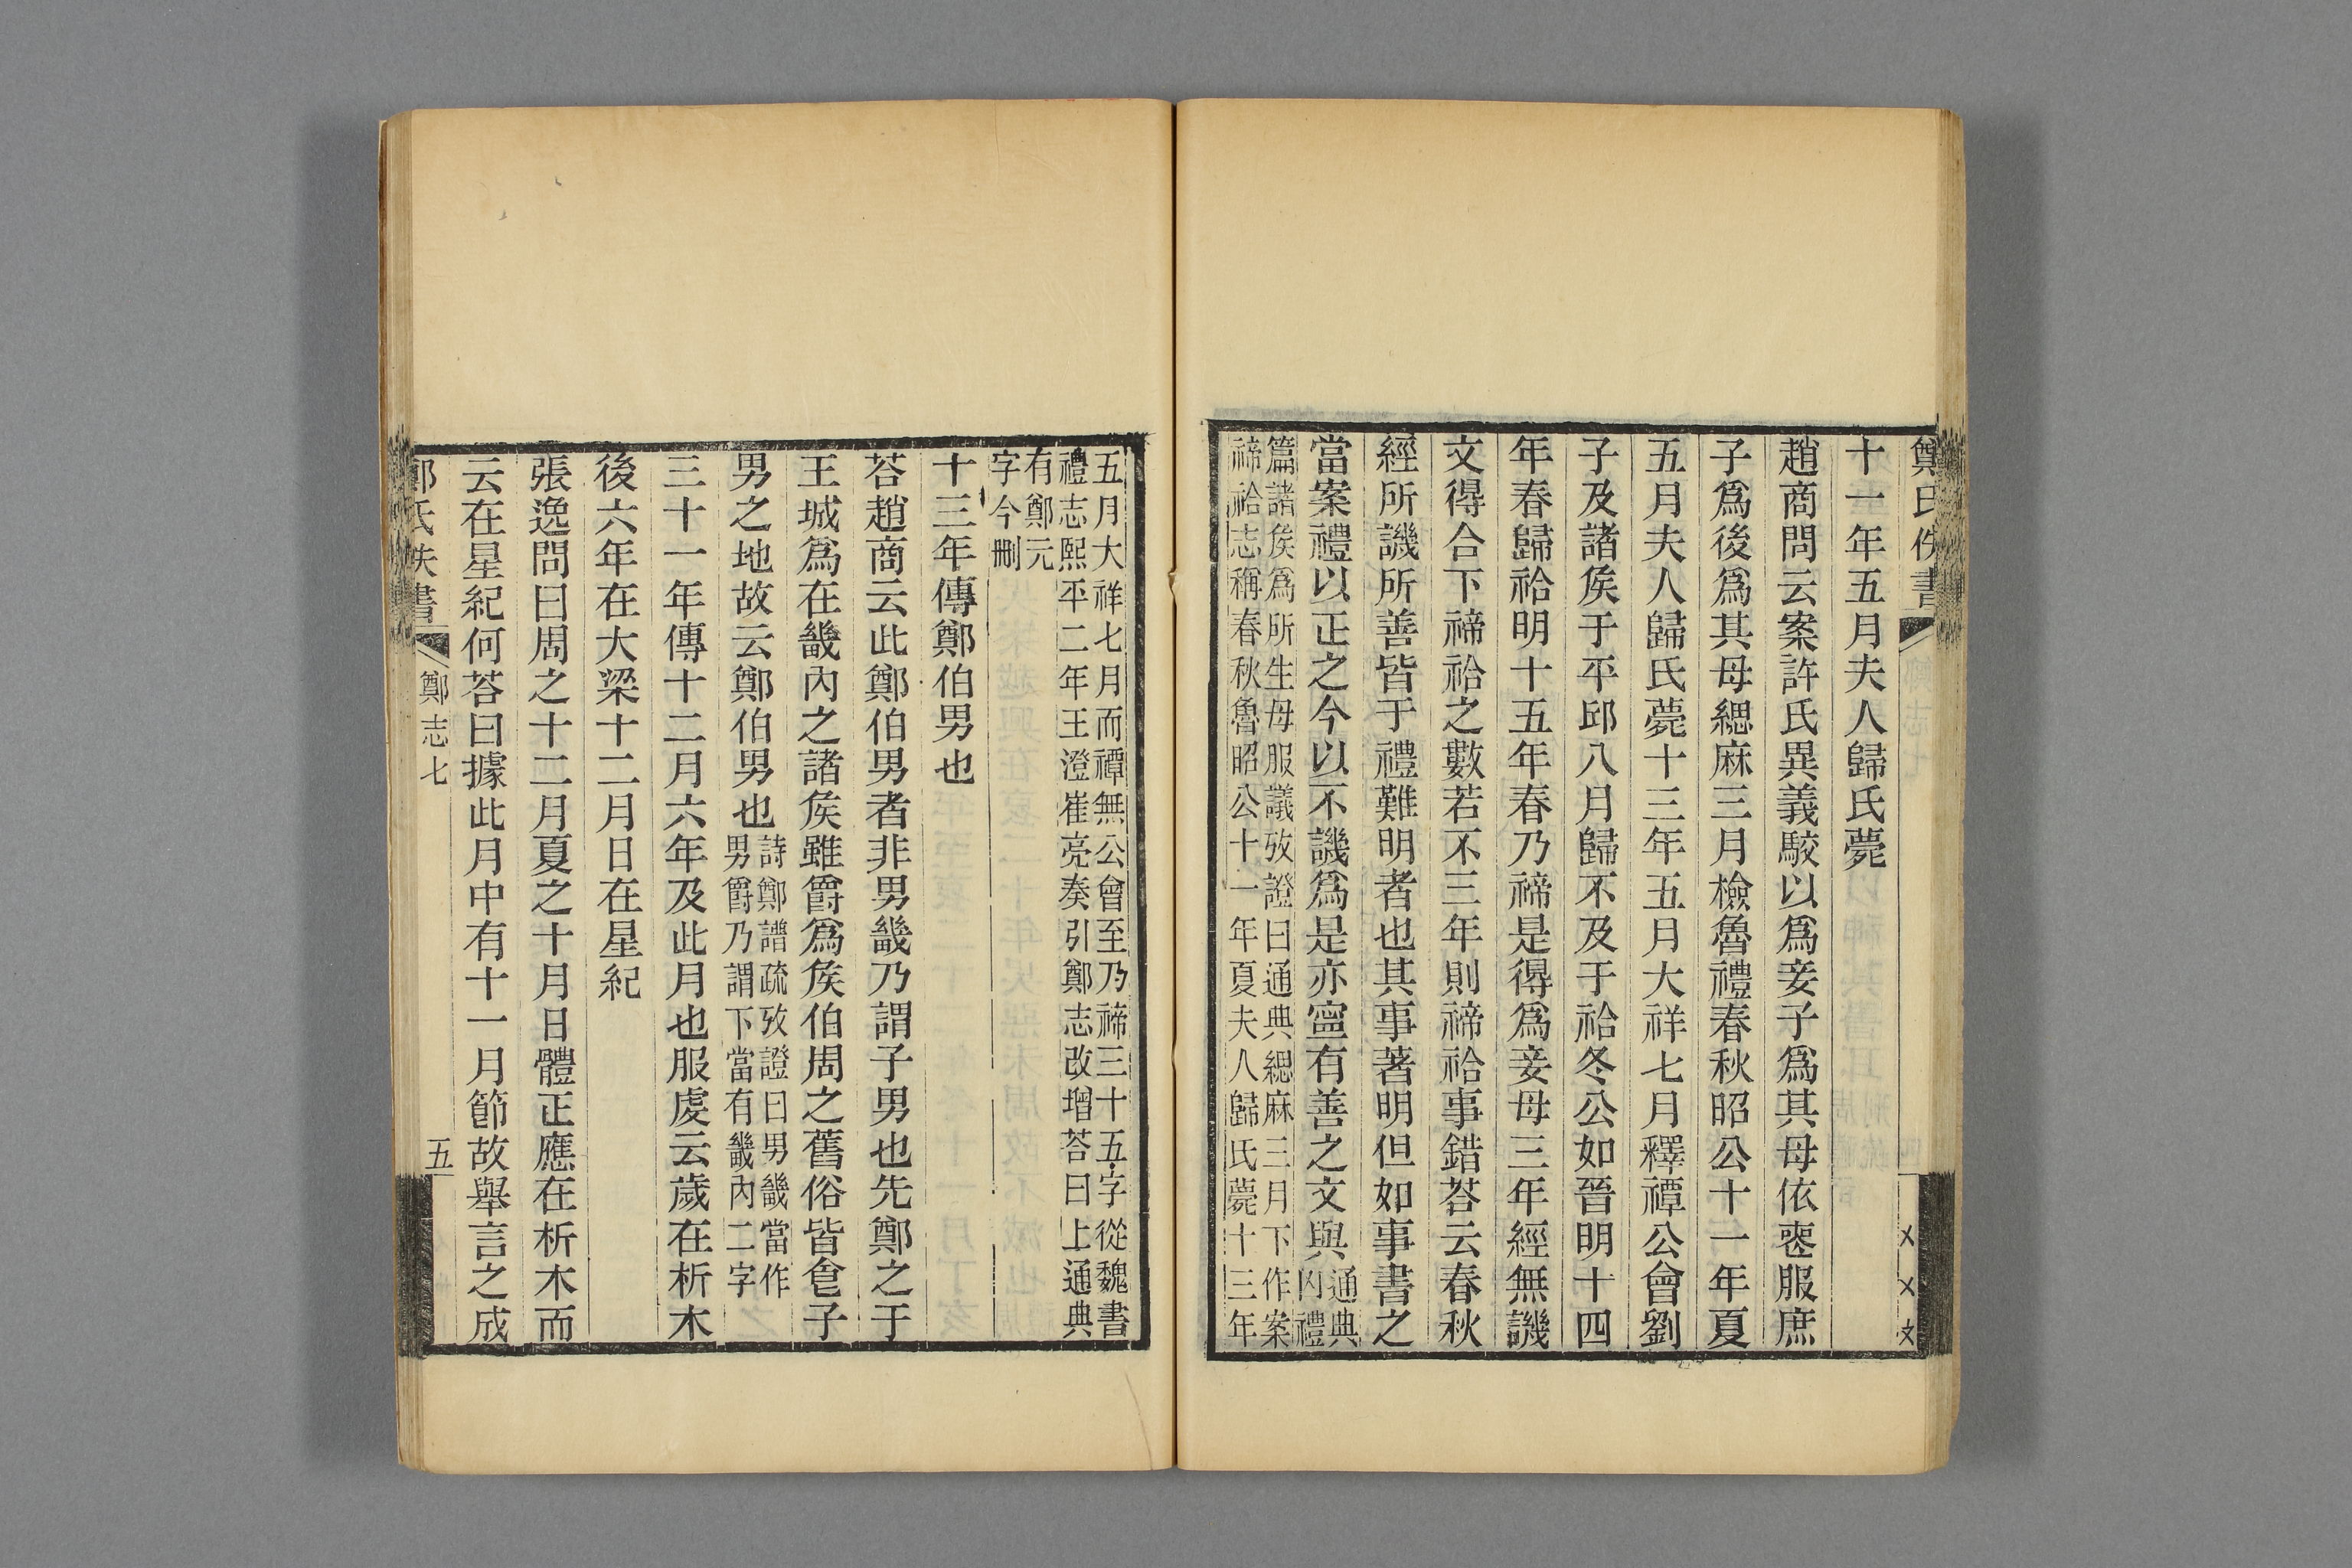 鄭氏佚書
十一年五月夫人歸氏薨
趙商問云案許氏異義駮以爲妾子爲其母依喪服庶
子爲後爲其母緦麻三月檢魯禮春秋昭公十一年夏
五月夫人歸氏薨十三年五月大祥七月釋禫公會劉
子及諸矦于平邱八月歸不及于祫冬公如晉明十四
年春歸祫明十五年春乃禘是得爲妾母三年經無譏
文得合下禘祫之數若不三年則禘祫事錯荅云春秋
經所譏所善皆于禮難明者也其事著明但如事書之
當案禮以正之今以不譏爲是亦寍有善之文與通典
凶禮
篇諸矦爲所生母服議攷證曰通典緦麻三月下作案
禘祫志稱春秋魯昭公十一年夏夫人歸氏薨十三年
五月大祥七月而禫無公會至乃禘三十五字從魏書
禮志熙平二年王澄崔亮奏引鄭志改增荅曰上通典
有鄭元
字今刪
十三年傳鄭伯男也
荅趙商云此鄭伯男者非男畿乃謂子男也先鄭之于
王城爲在畿內之諸矦雖爵爲矦伯周之舊俗皆食子
男之地故云鄭伯男也詩鄭譜疏攷證曰男畿當作
男爵乃謂下當有畿內二字
三十一年傳十二月六年及此月也服虔云歲在析木
後六年在大梁十二月日在星紀
張逸問曰周之十二月夏之十月日體正應在析木而
云在星紀何荅曰據此月中有十一月節故舉言之成
鄭氏佚書
鄭志七
五